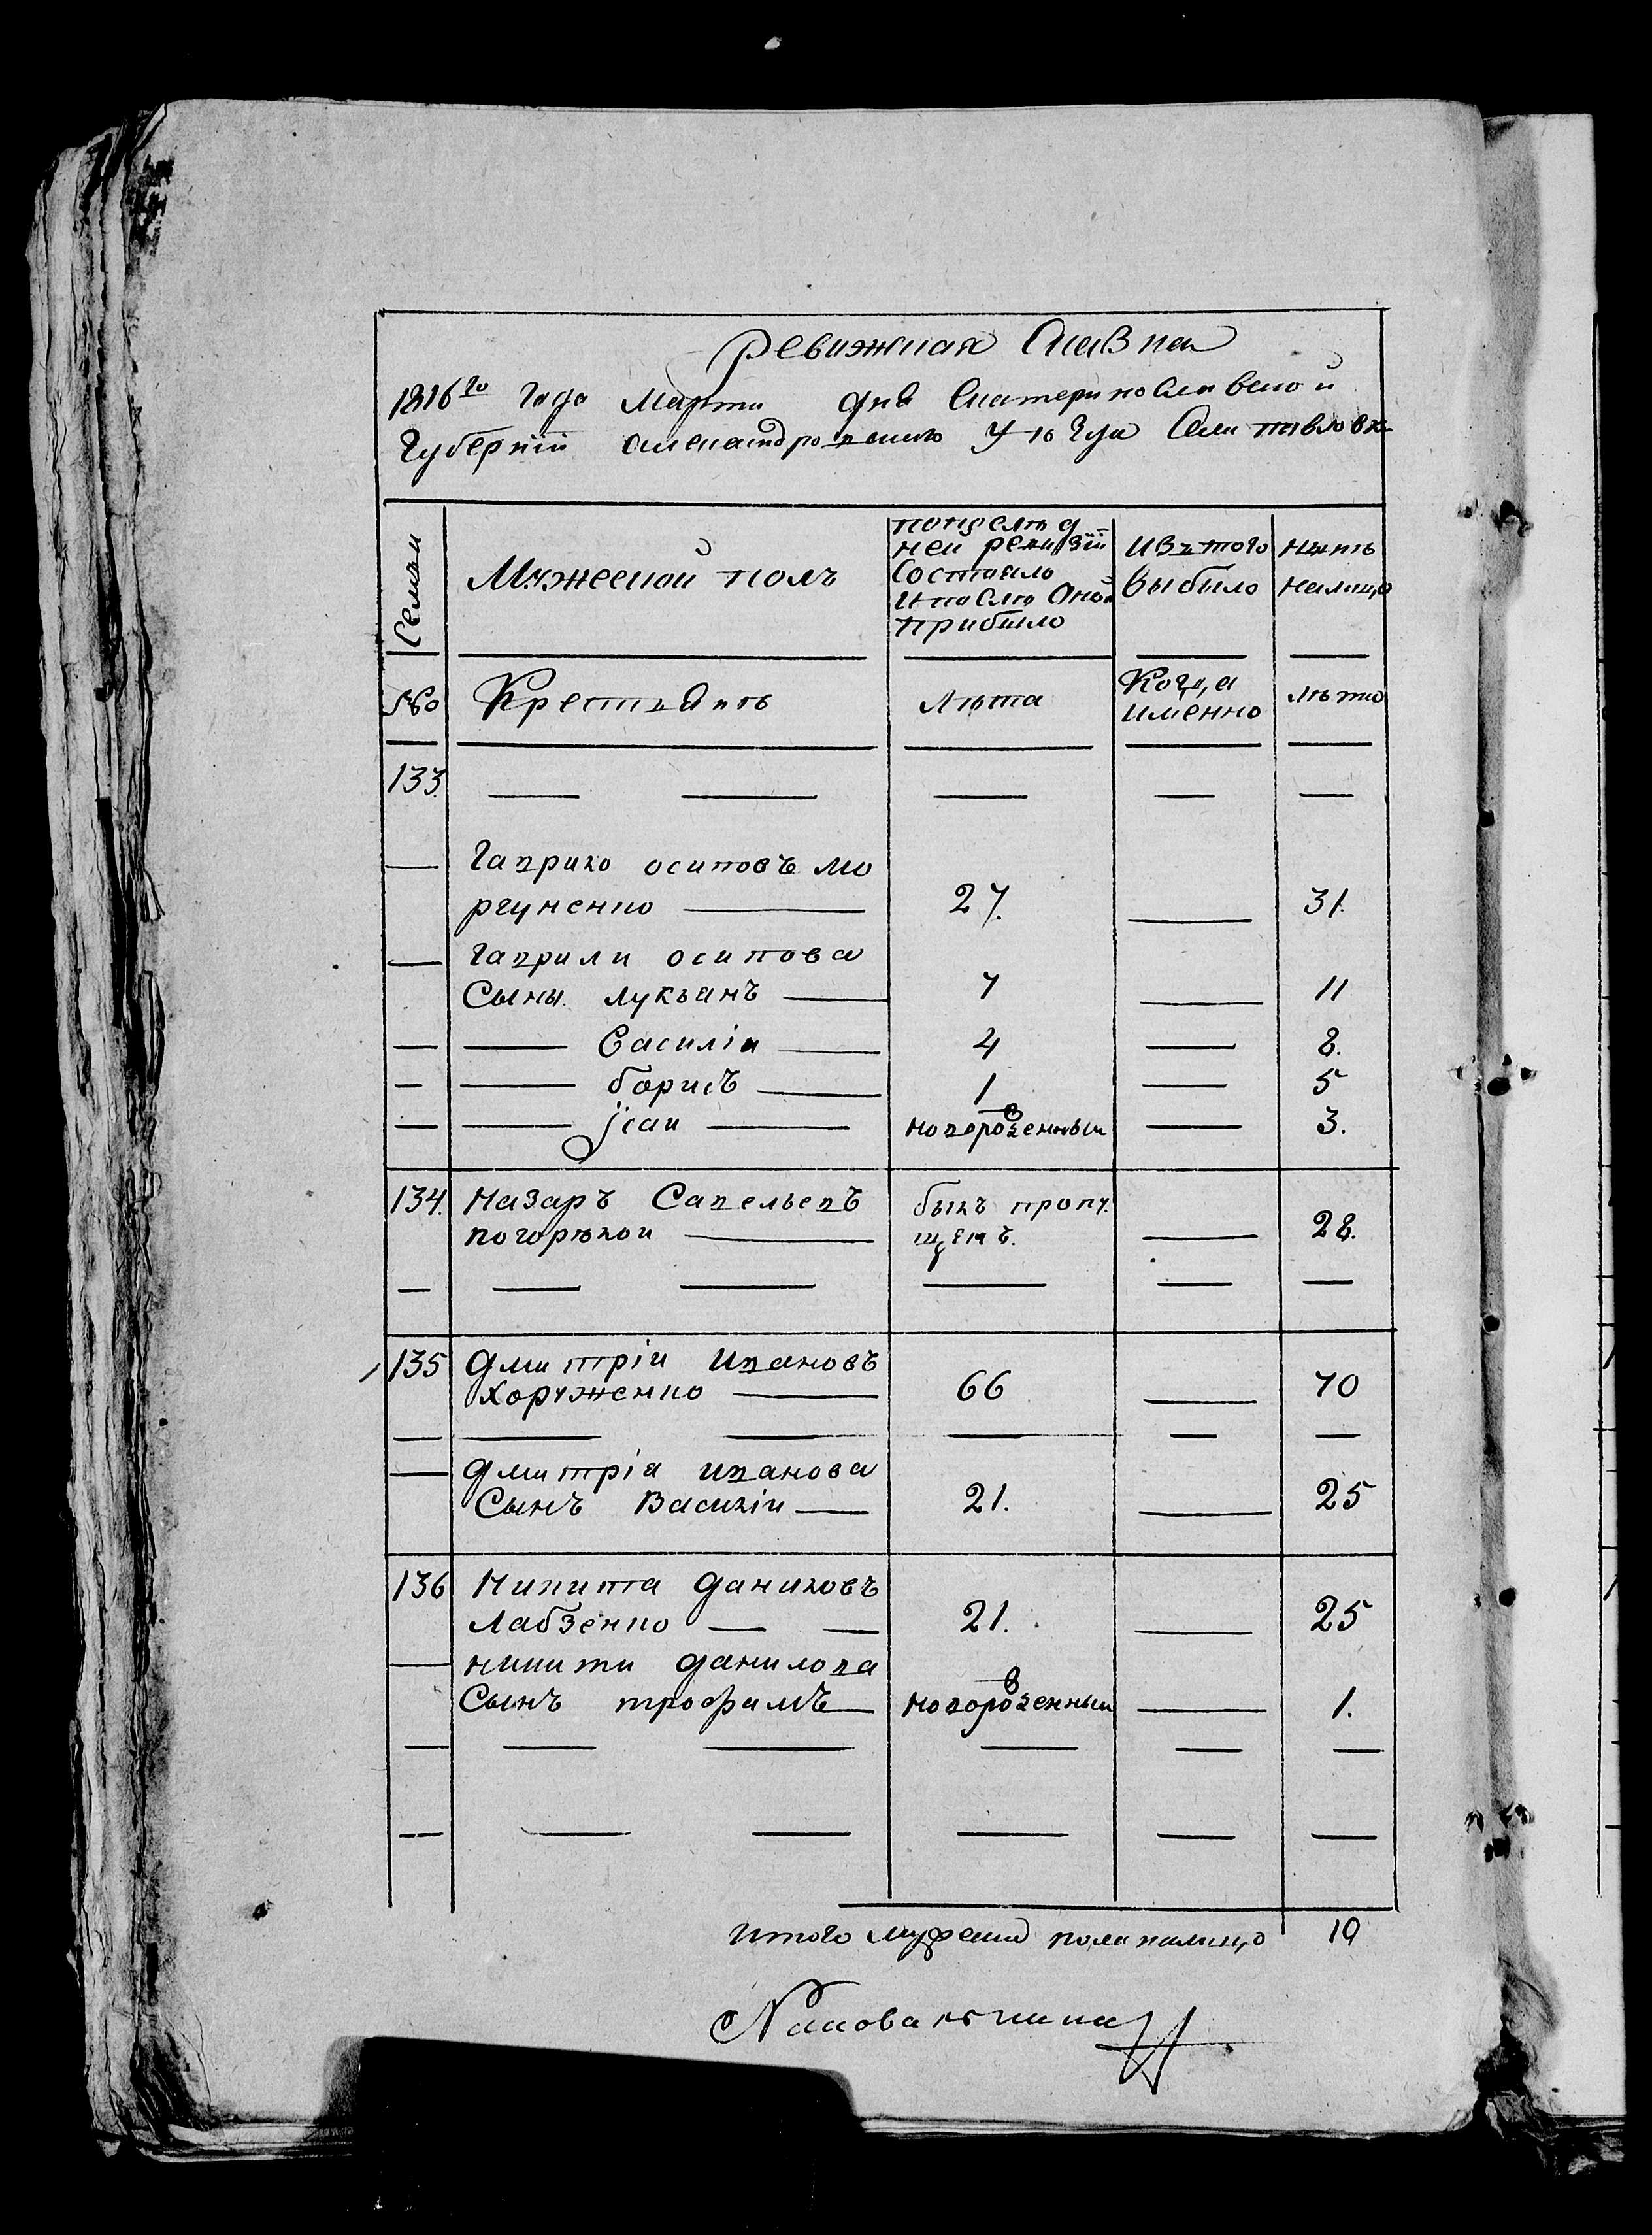 Ревижная Сказка
1816го Года Марта дня Екатеринославской
Губернїи Александровского Уѣзда Села Павловки
Семьи
Мужеской полъ
попослѣд
ней ревизїи
состояло
и послѣ Оной
прибыло
Изтого
выбыло
Нынѣ
налицо
№
Крестьянѣ
Лѣта
Когда
именно
лѣта
133.
Гаврило осиповъ мо
ргуненко 27. 31.
Гаврили осипова
Сыны лукьянъ 7 11
Василіи 4 8.
борисъ 1 5
новорожденныи 3.
134. Назаръ Савельевъ быль пропу
погорѣлои щенъ. 28.
135 Дмитріи Ивановъ
Хоруженко 66 70
Дмитрія иванова
Сынъ Василіи 21. 25
136 Никита Даниловъ
Лабзенко 21. 25
никити данилова
Сынъ трофимъ новорожденныи 1.
Итого мужеска пола налицо 10